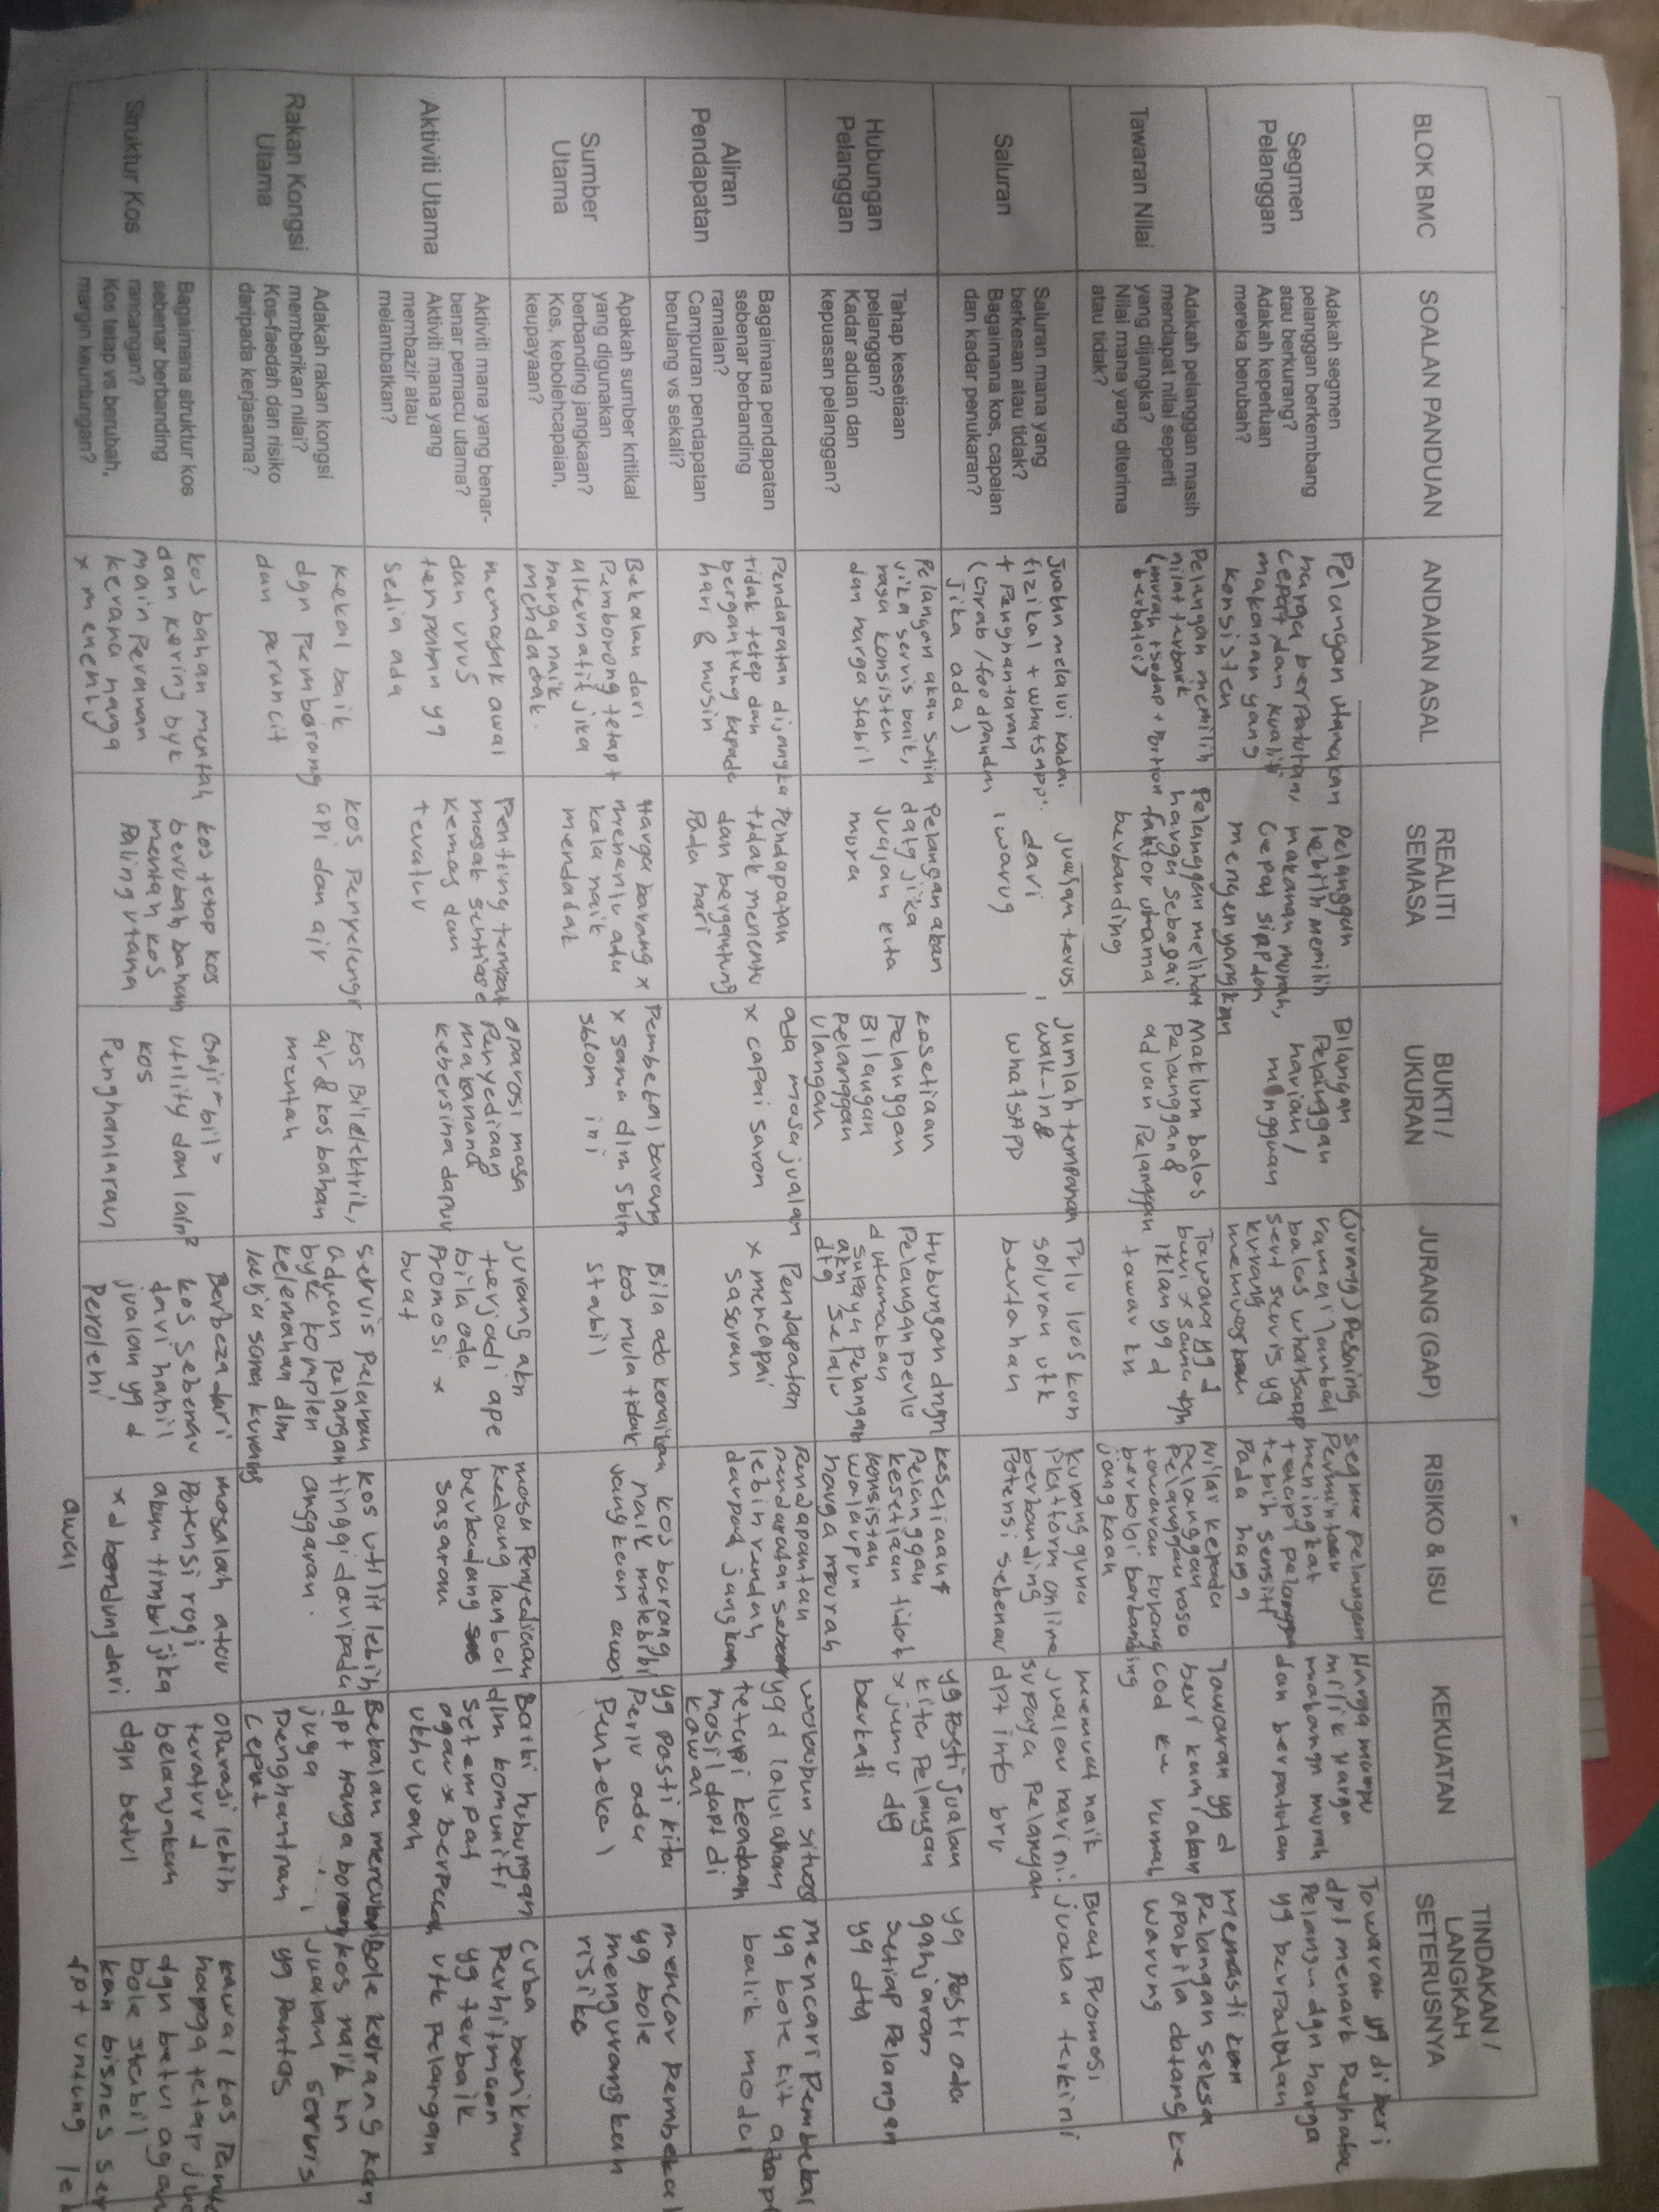 BLOK BMC
SOALAN PANDUAN
ANDAIAN ASAL
REALITI
SEMASA
BUKTI /
UKURAN
JURANG (GAP)
RISIKO & ISU
KEKUATAN
TINDAKAN /
LANGKAH
SETERUSNYA
Segmen
Pelanggan
Adakah segmen
pelanggan berkembang
atau berkurang?
Adakah keperluan
mereka berubah?
Pelangan utamakan
harga berpatutan,
cepat dan kualiti
makanan yang
konsisten
Pelanggan
lebih memilih
makanan murah,
cepat siap dan
mengenyangkan
Bilangan
Pelanggan
harian /
mingguan
(Jurang) Pesaing
ramai lambat
balas whatsapp
sert servis yg
kurang
memuaskan
segme pelangan
Permintaan
meningkat
tetapi pelanggan
lebih sensitif
Pada harga
Harga mampu
milik Harga
makanan murah
dan berpatutan
Tawaran yg di beri
dpt menarik Perhatian
Pelangan dgn harga
yg berpatutan
Tawaran Nilai
Adakah pelanggan masih
mendapat nilai seperti
yang dijangka?
Nilai mana yang diterima
atau tidak?
Pelangan memilih
nilai terbaik
(murah + sedap + Portion
berbaloi)
Pelanggan melihat
harga sebagai
faktor utama
berbanding
Maklum balas
Pelanggan &
aduan Pelanggan
Tawara yg d
beri x sama dgn
iklan yg d
tawar kn
Nilai kepada
pelanggan
Pelanggan rasa
tawaran kurang
berbaloi berbanding
jangkaan
Tawaran yg d
beri kami akan
cod ke rumah
memasti kan
Pelangan selesa
apabila datang ke
warung
Saluran
Saluran mana yang
berkesan atau tidak?
Bagaimana kos, capaian
dan kadar penukaran?
Jualan melalui kedai
fizikal + whatsapp
+ Penghantaran
(Grab / foodpanda
jika ada)
jualan terus
dari
warung
jumlah tempahan
walk-in &
whatsApp
Prlu luaskan
saluran utk
bertahan
kurang guna
Platform online
berbanding
Potensi sebenar
memuat naik
jualan hari ni
supaya Pelangan
dpt info bru
Buat Promosi
jualan terkini
Hubungan
Pelanggan
Tahap kesetiaan
pelanggan?
Kadar aduan dan
kepuasan pelanggan?
Pelangan akan setia
jika servis baik,
rasa konsisten
dan harga stabil
Pelangan akan
datg jika
jualan kita
mura
kesetiaan
pelanggan
Bilangan
pelanggan
ulangan
Hubungan dngn
Pelangan perlu
diutamakan
supaya pelangan
akn selalu
dtg
kesetiaan
Pelanggan
kesetiaan tidak
konsistan
walaupun
harga murah
yg Pasti jualan
kita Pelangan
x jemu dtg
berkati
yg Pasti ada
ganjaran
setiap Pelangan
yg dtg
Aliran
Pendapatan
Bagaimana pendapatan
sebenar berbanding
ramalan?
Campuran pendapatan
berulang vs sekali?
Pendapatan dijangka
tidak tetap dan
bergantung kepada
hari & musin
Pendapatan
tidak menentu
dan bergantung
Pada hari
ada masa jualan
x capai saran
Pendapatan
x mencapai
sasaran
Pendapantan
lebih rendah
darpad jangkan
walaupun situasi
yg d lalui
tetapi keadaan
masil dapt di
kawal
mencari Pembekal
yg bole kit
balik modal
Sumber
Utama
Apakah sumber kritikal
yang digunakan
berbanding jangkaan?
Kos, kebolehcapaian,
keupayaan?
Bekalan dari
Pemborong tetap +
alternatif jika
harga naik
mendadak.
Harga barang x
menentu ada
kala naik
mendadak
Pembekal barang
x sama dlm sbln
sblom ini
Bila ado kenaikan
kos mula tidak
stabil
kos barang
naik melebihi
jangkaan awal
yg Pasti kita
Perlu ada
Penbekal
mencar Pembekal
yg bole
mengurangkan
risiko
Aktiviti Utama
Aktiviti mana yang benar-
benar pemacu utama?
Aktiviti mana yang
membazir atau
melambatkan?
memasak awal
dan urus
tempahan yg
sedia ada
Penting tempat
masak sentiase
kemas dan
teratur
oparasi masa
Penyediaan
makanan &
kebersihan dapur
jurang akn
terjadi ape
bila ada
Promosi x
buat
masa Penyediaan
kadang lambat
berbanding
sasaran
Baiki hubungan
dlm komuniti
setempat
agar x berpecah
ukhuwah
cuba berikan
Perhitmaan
yg terbaik
utk Pelangan
Rakan Kongsi
Utama
Adakah rakan kongsi
memberikan nilai?
Kos-faedah dan risiko
daripada kerjasama?
Kekal baik
dgn Pemborong
dan peruncit
kos Penyelengr
api dan air
kos Bil elektrik,
air & kos bahan
mentah
servis pelanan
aduan pelangan
byk komplen
kelemahan dlm
kerja sama kurang
kos utilit lebih
tinggi daripada
anggaran.
Bekalan mencukupi
dpt harga borong
juga
Penghantran
cepat
Bole kurang kan
kos naik kn
jualan servis
yg Pantas
Struktur Kos
Bagaimana struktur kos
sebenar berbanding
rancangan?
Kos tetap vs berubah,
margin keuntungan?
kos bahan mentah
dan kering byk
main Peranan
kerana harga
x menentu
kos tetap kos
berubah bahan
mentah kos
Paling utama
Gaji - bil
utility dan lain2
kos
Penghantaran
Berbeza dari
kos sebenar
dari hasil
jualan yg d
Perolehi
masalah atau
Potensi rugi
akan timbul jika
x d bendung dari
awal
oparasi lebih
teratur d
belanjakan
dgn betul
kawal kos
harga tetap
dgn betul agar
bole stabil
kan bisnes
dpt untung